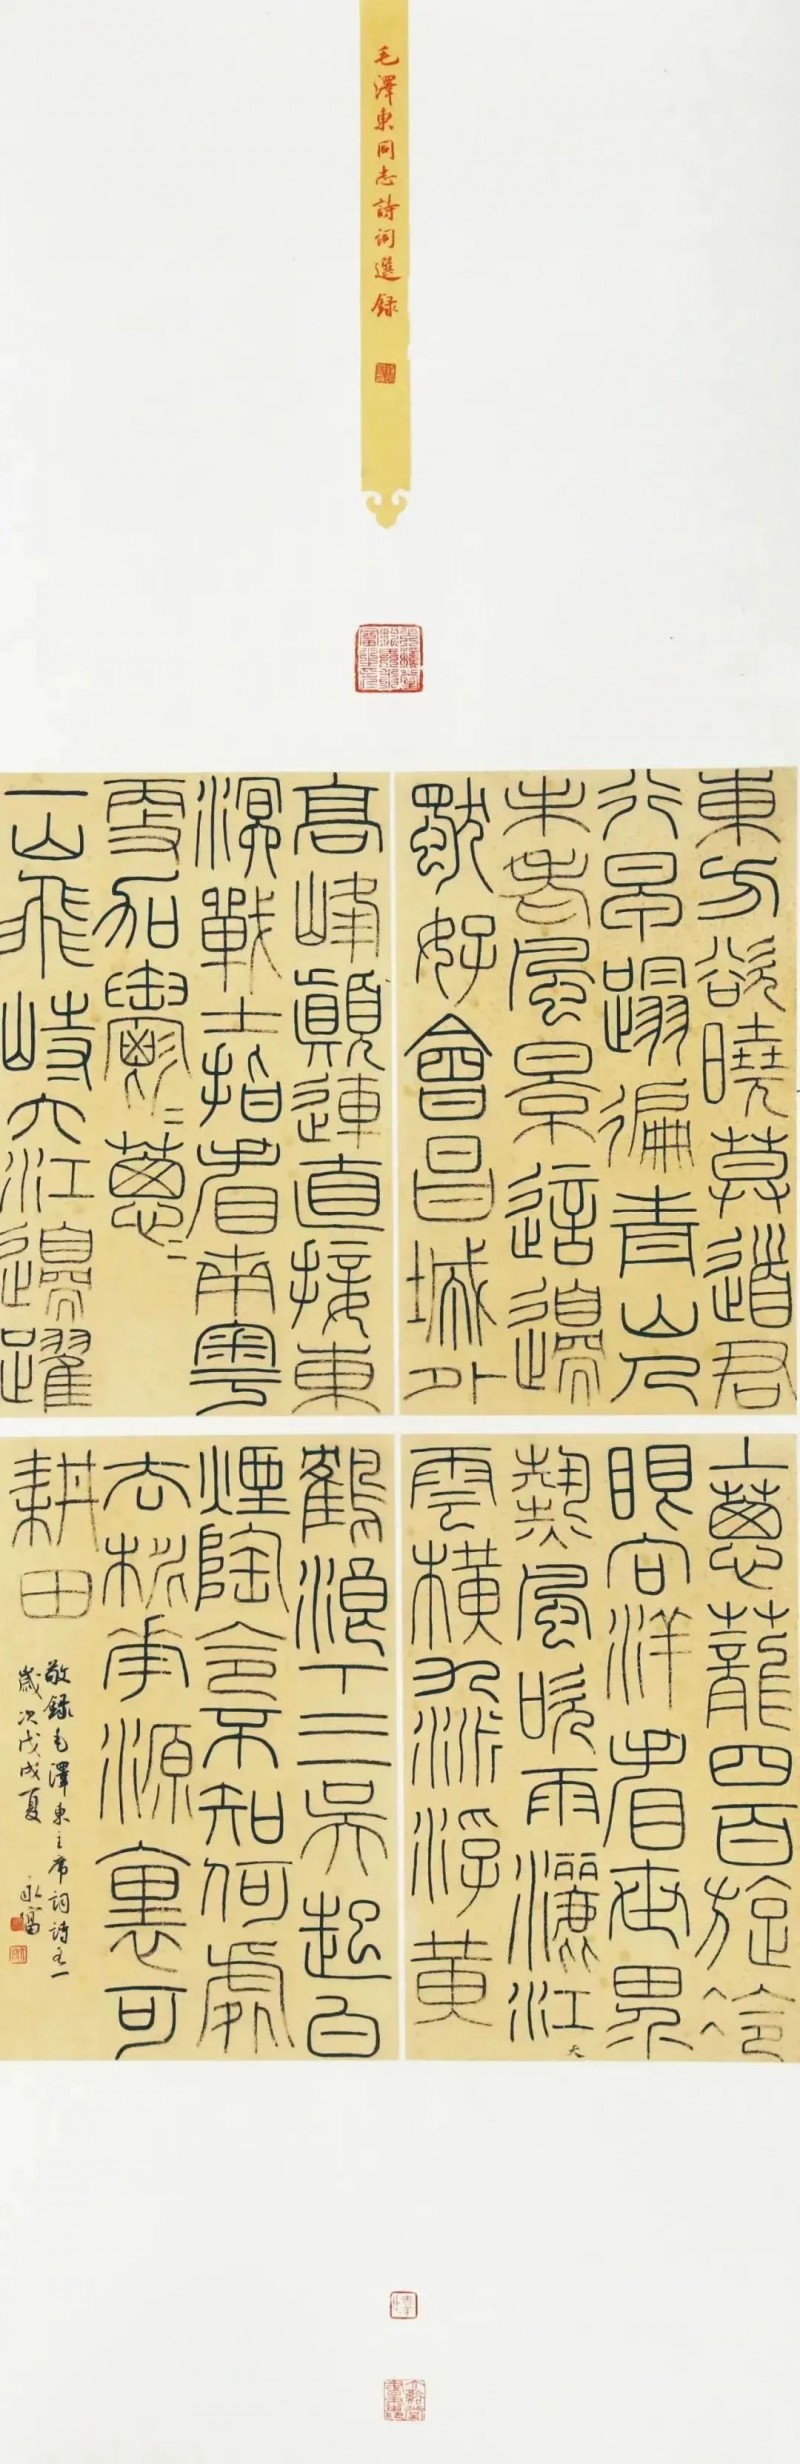 毛澤東同志詩詞選錄
東方欲曉莫道君
行早踏遍青山人
未老風景這邊
獨好會昌城外
高峰顛連直接東
溟戰士指看南粵
更加鬱=蔥=
一山飛峙大江邊躍
上蔥蘢四百旋冷
眼向洋看世界
熱風吹雨灑江天
雲橫九派浮黃
鶴浪下三吳起白
煙陶令不知何處
去桃華源裏可
耕田
敬錄毛澤東主席詞詩各一
歲次戊戌夏 永富